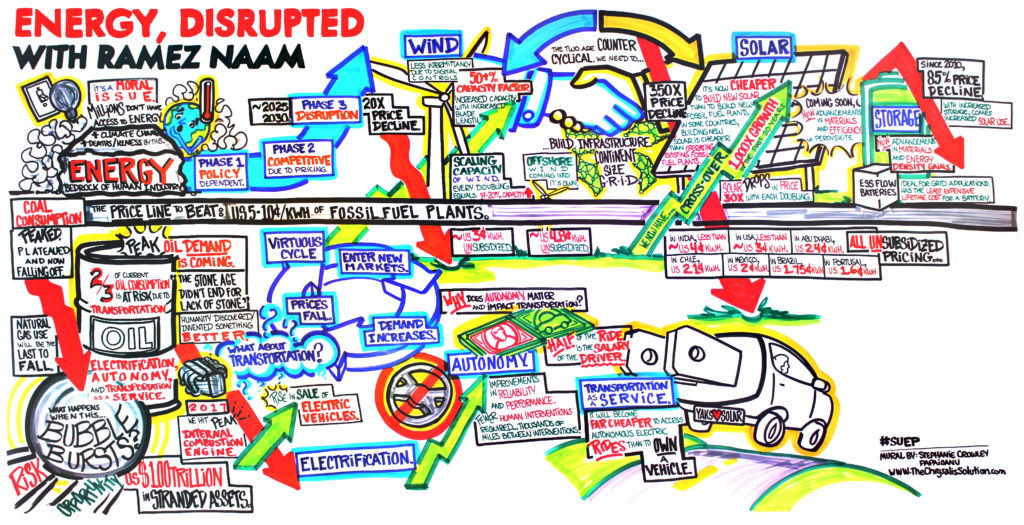 ENERGY, DISRUPTED
WITH RAMEZ NAAM
IT'S A MORAL
ISSUE.
MILLIONS DON'T HAVE
ACCESS TO ENERGY
+ CLIMATE CHANGE
+ DEATHS / ILLNESS BY THIS.
ENERGY
BEDROCK OF HUMAN INDUSTRY
PHASE 1
POLICY
DEPENDENT.
PHASE 2
COMPETITIVE
DUE TO PRICING.
~2025
2030.
PHASE 3
DISRUPTION
20X
PRICE
DECLINE.
WIND
LESS INTERMITTANCY
DUE TO DIGITAL
CONTROLS
50+%
CAPACITY FACTOR
INCREASED CAPACITY
WITH INCREASED
BLADE
LENGTH.
SCALING
CAPACITY
OF WIND.
EVERY DOUBLING
EQUALS
OFFSHORE
WIND
COMING INTO
IT'S OWN.
THE TWO ARE COUNTER
CYCLICAL. WE NEED TO...
...BUILD INFRASTRUCTURE
CONTINENT
SIZE
G·R·I·D
350X
PRICE
DECLINE
SOLAR
CHEAPER
IT'S NOW
TO BUILD NEW SOLAR
THAN TO BUILD NEW
FOSSIL FUEL PLANTS.
IN SOME COUNTRIES,
BUILDING NEW
SOLAR IS CHEAPER
THAN OPERATING
EXISTING FOSSIL
FUEL PLANTS.
100X GROWTH
WE YOU HAVE... CROSS-OVER
COMING SOON,
NEW ADVANCEMENTS
IN MATERIALS
AND EFFICIENCY
I.E. PEROVSKITE.
SOLAR DROPS IN PRICE
30% WITH EACH DOUBLING
STORAGE
SINCE 2010,
85% PRICE
DECLINE
WITH INCREASED
STORAGE, COMES
INCREASED
SOLAR USE.
NEW ADVANCEMENT
IN MATERIALS
AND ENERGY
DENSITY GAINS.
ESS FLOW
BATTERIES
IDEAL FOR GRID APPLICATIONS.
HAS THE LEAST EXPENSIVE
LIFETIME COST FOR A BATTERY.
COAL
CONSUMPTION
THE PRICE LINE TO BEAT:
OF FOSSIL FUEL PLANTS.
PEAKED,
PLATEAUED
AND NOW
FALLING OFF.
NATURAL
GAS USE
WILL BE THE
LAST TO
FALL.
PEAK OIL DEMAND
IS COMING.
2/3
OF CURRENT
OIL CONSUMPTION
IS AT RISK DUE TO
TRANSPORTATION
OIL
THE STONE AGE
DIDN'T END FOR
LACK OF STONE?
HUMANITY DISCOVERED/
INVENTED SOMETHING
BETTER
ELECTRIFICATION,
AUTONOMY,
AND TRANSPORTATION
AS A SERVICE.
2017
WE HIT PEAK
INTERNAL
COMBUSTION
ENGINE.
WHAT HAPPENS
WHEN THIS...
BUBBLE
BURSTS?
RISK
OPPORTUNITY
US $100 TRILLION
IN STRANDED ASSETS.
VIRTUOUS
CYCLE
ENTER NEW
MARKETS.
PRICES
FALL.
DEMAND
INCREASES.
WHAT ABOUT
TRANSPORTATION?
RISE IN SALE OF
ELECTRIC
VEHICLES.
ELECTRIFICATION.
~US 3¢ KWH.
UNSUBSIDIZED
UNSUBSIDIZED
WHY DOES AUTONOMY MATTER
AND IMPACT TRANSPORTATION?
HALF OF THE RIDE
IS THE SALARY
OF THE DRIVER.
AUTONOMY
IMPROVEMENTS
IN RELIABILITY
AND PERFORMANCE.
FEWER HUMAN INTERVENTIONS
REQUIRED. THOUSANDS OF
MILES BETWEEN INTERVENTIONS.
TRANSPORTATION
AS A SERVICE.
IT WILL BECOME
FAR CHEAPER TO ACCESS
AUTONOMOUS ELECTRIC
RIDES THAN TO OWN
A VEHICLE.
IN INDIA, LESS THAN
~US 4¢ KWH.
IN USA, LESS THAN
~US 3¢ KWH.
IN ABU DHABI,
US 2.4¢ KWH.
ALL UNSUBSIDIZED
PRICING...
IN CHILE,
US 2.1¢ KWH.
IN MEXICO,
US 2¢ KWH.
IN BRAZIL,
US 1.75¢ KWH.
IN PORTUGAL,
US 1.6¢ KWH.
YAKS ♥ SOLAR
#SUEP
MURAL BY: STEPHANIE CROWLEY
PAPAIOANU
www.TheChrysalisSolution.com